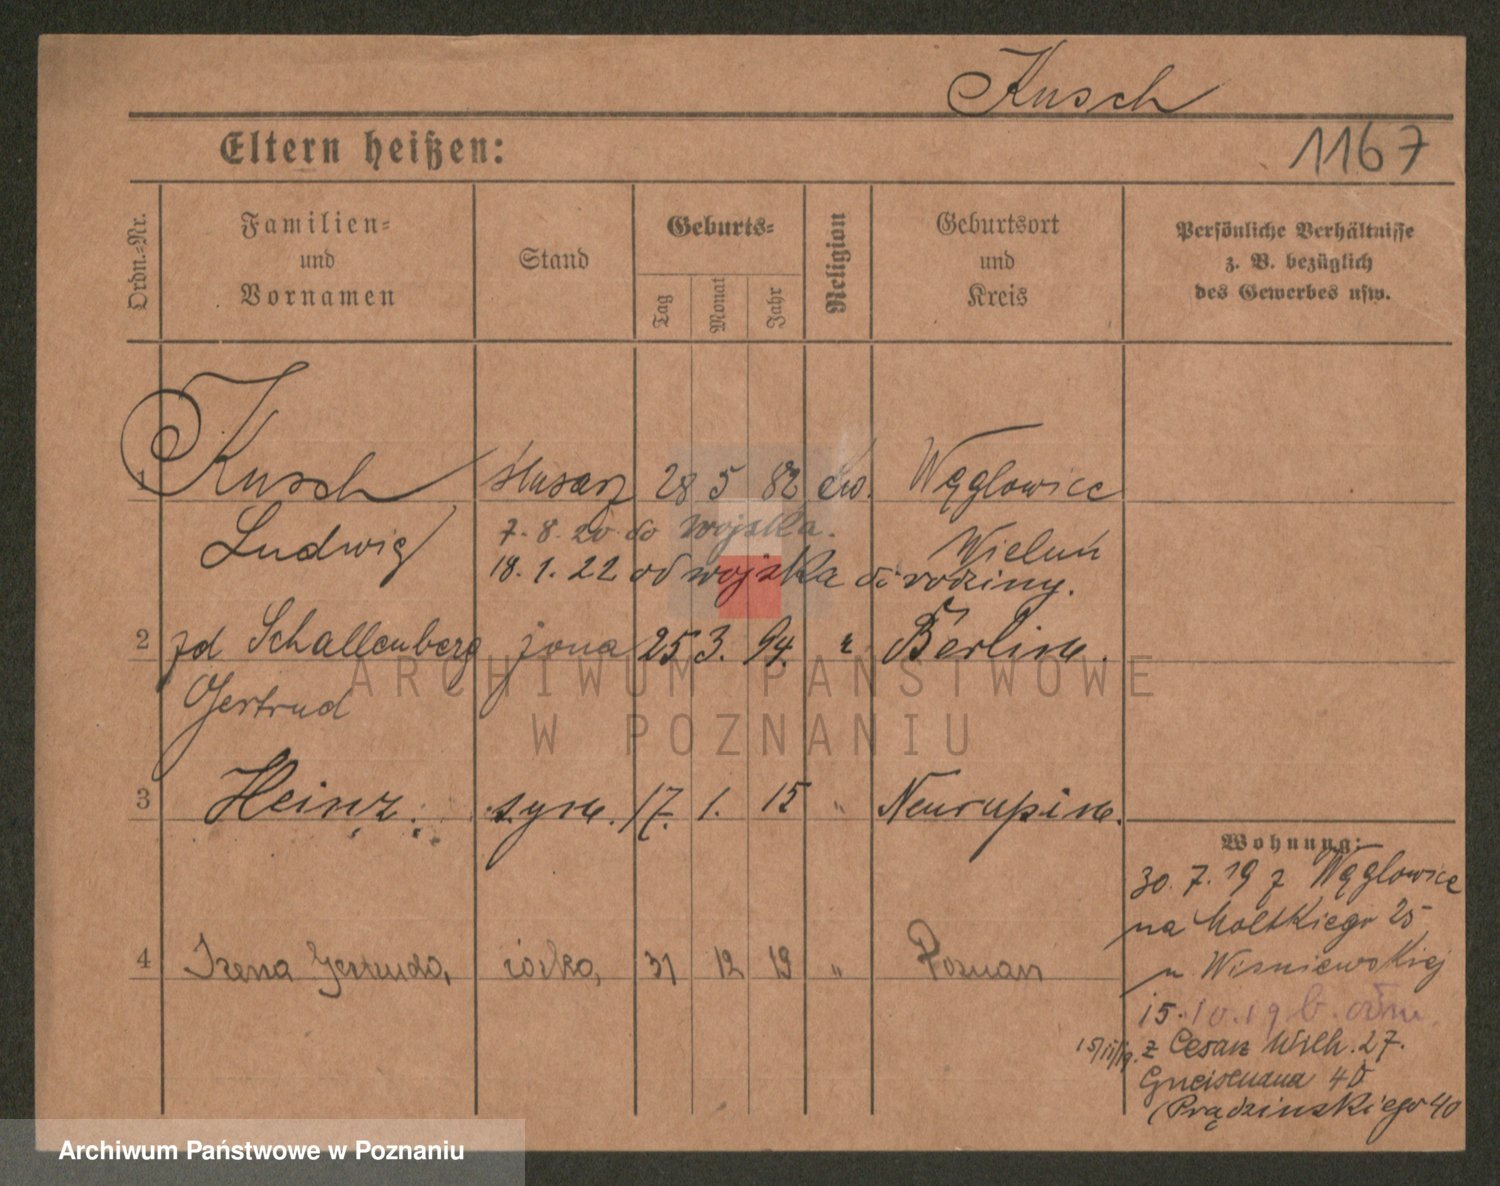 Kusch
Eltern heißen:
1167
Ordn.-Nr.
Familien-
und
Vornamen
Stand
Geburts-
Tag
Monat
Jahr
Religion
Geburtsort
und
Kreis
Persönliche Verhältnisse
z. B. bezüglich
des Gewerbes usw.
1 Kusch ślusarz 28 5 82 ew. Węglowice
Ludwig 7. 8. 20 do wojska. Wieluń
18. 1. 22 od wojska do rodziny.
2 zd Schallenberg żona 25 3. 94. " Berlin.
Gertrud
3 Heinz syn. 17. 1. 15 " Neurupin.
Wohnung:
30. 7. 19 z Węglowice
na Moltkiego 25
u Wiśniewskiej
4 Irena Gertruda, córka, 31 12 19 " Poznań
15. 10. 19
15/11/19. z Cesarz Wilh. 27.
Gneisenaua 40
(Prądzińskiego 40
ARCHIWUM PAŃSTWOWE
W POZNANIU
Archiwum Państwowe w Poznaniu